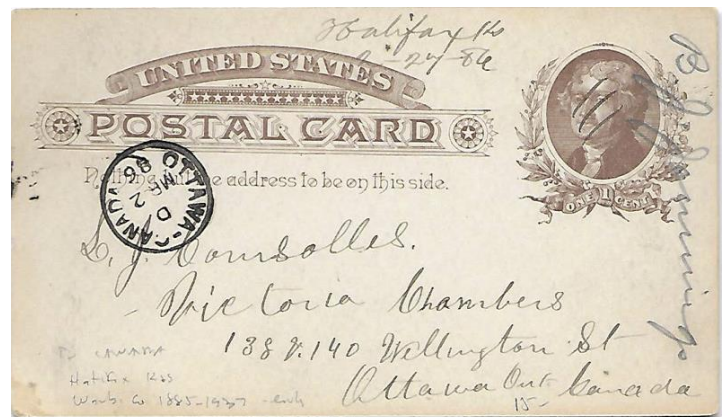 Halifax Ks
2-27-86
UNITED STATES
POSTAL CARD
Nothing but the address to be on this side.
ONE 1 CENT
OTTAWA-CANADA
D
MR 2
86
L. J. Coursolles.
Victoria Chambers
138 & 140 Wellington St
Ottawa Ont Canada
15-
To CANADA
Halifax Kss
Wab. Co 1885-1937